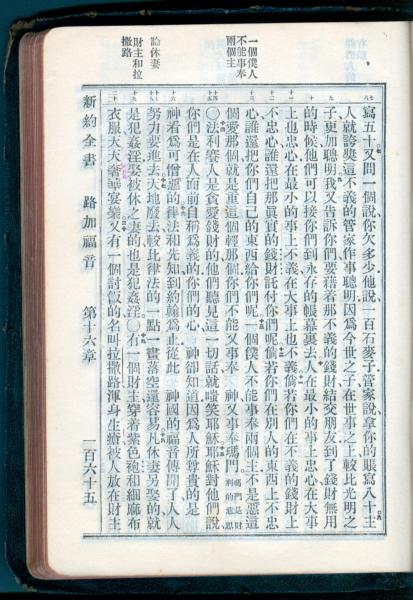 一個僕人
不能事奉
兩個主
論休妻
財主和拉
撒路
寫五十又問一個說你欠多少他說一百石麥子管家說拿你的賬寫八十主
人就誇獎這不義的管家作事聰明因爲今世之子在世事之上較比光明之
子更加聰明我又告訴你們要藉着那不義的錢財結交朋友到了錢財無用
的時候他們可以接你們到永存的帳幕裏去人在最小的事上忠心在大事
上也忠心在最小的事上不義在大事上也不義倘若你們在不義的錢財上
不忠心誰還把那眞實的錢財託付你們呢倘若你們在別人的東西上不忠
心誰還把你們自己的東西給你們呢一個僕人不能事奉兩個主不是惡這
個愛那個就是重這個輕那個你們不能又事奉 神又事奉瑪門瑪門是財利的意思
〇法利賽人是貪愛錢財的他們聽見這一切話就嗤笑耶穌耶穌對他們說
你們是在人面前自稱爲義的你們的心 神卻知道因爲人所尊貴的是
神看爲可憎惡的律法和先知到約翰爲止從此 神國的福音傳開了人人
努力要進去天地廢去較比律法的一點一畫落空還容易凡休妻另娶的就
是犯姦淫娶被休之妻的也是犯姦淫〇有一個財主穿着紫色袍和細麻布
衣服天天奢華宴樂又有一個討飯的名叫拉撒路渾身生瘡被人放在財主
新約全書 路加福音 第十六章 一百六十五